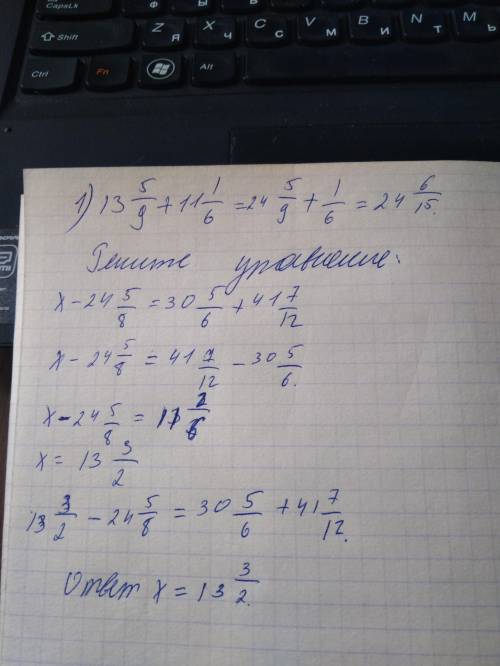 CapsLk Ф Ы
Shift Z Я X Ч C С V М B И N Т M Ь
Ctrl Fn Alt
1) 13 5/9 + 11 1/6 = 24 5/9 + 1/6 = 24 6/15.
Решите уравнение.
x - 24 5/8 = 30 5/6 + 41 7/12
x - 24 5/8 = 41 7/12 - 30 5/6.
x - 24 5/8 =
x = 13 3/2
13 3/2 - 24 5/8 = 30 5/6 + 41 7/12.
Ответ x = 13 3/2.